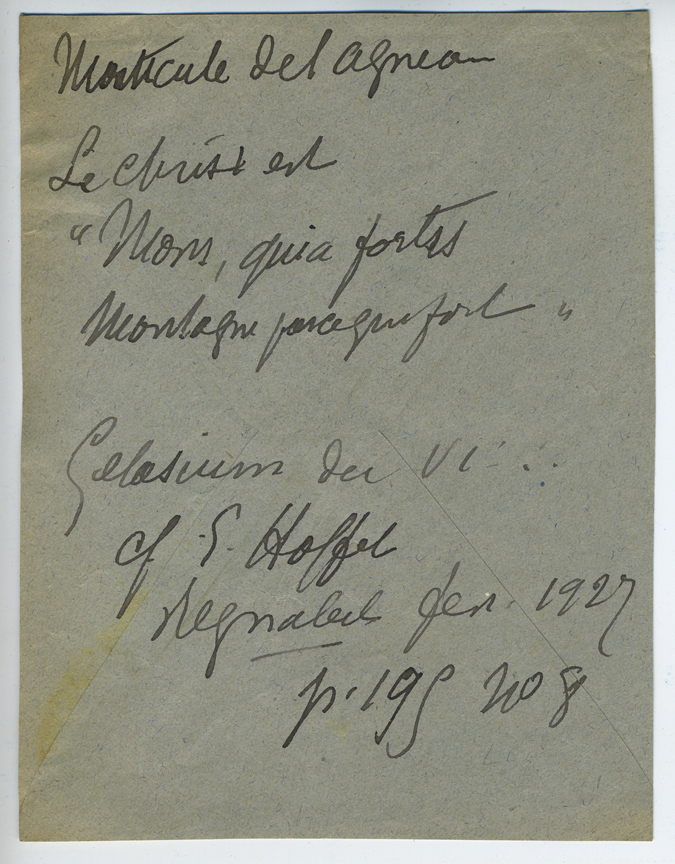 Monticule de l agneau
Le christ est
"Mons, quia fortis
Montagne parceque fort "
Gelasium du VI
cf E. Hoffet
Regnabit fev. 1927
p. 195 no 8